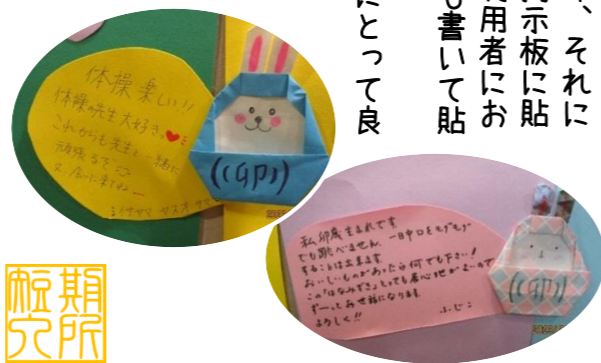 、それに
示板に貼
用者にお
書いて貼
にとって良
体操楽しい!!
体操の先生大好き。
これからも先生と一緒に
頑張るぞ
又、会いに来てね
((卯))
私卯歳生まれです
でも跳べません。一日中口をもぐもぐ
することは出来ます
おいしいものがあったら何でも下さい!
この「はなみずき」とっても居心地がよいので
ずーっとお世話になります
よろしく!!
ふじこ
((卯))
短期
入所